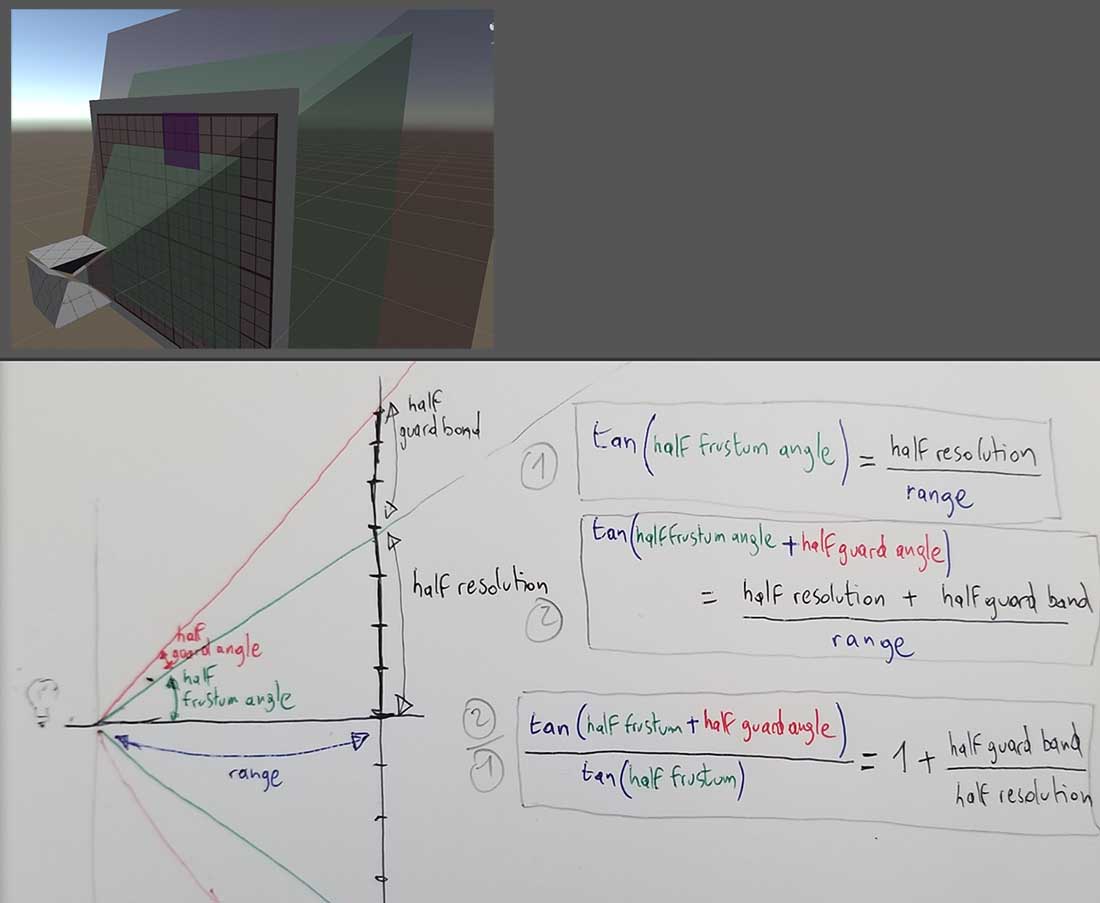 half
guard band
half resolution
half
guard angle
half
frustum angle
range
1
tan(half frustum angle) = half resolution
range
2
tan(half frustum angle + half guard angle)
= half resolution + half guard band
range
2
1
tan(half frustum + half guard angle)
tan(half frustum)
= 1 + half guard band
half resolution